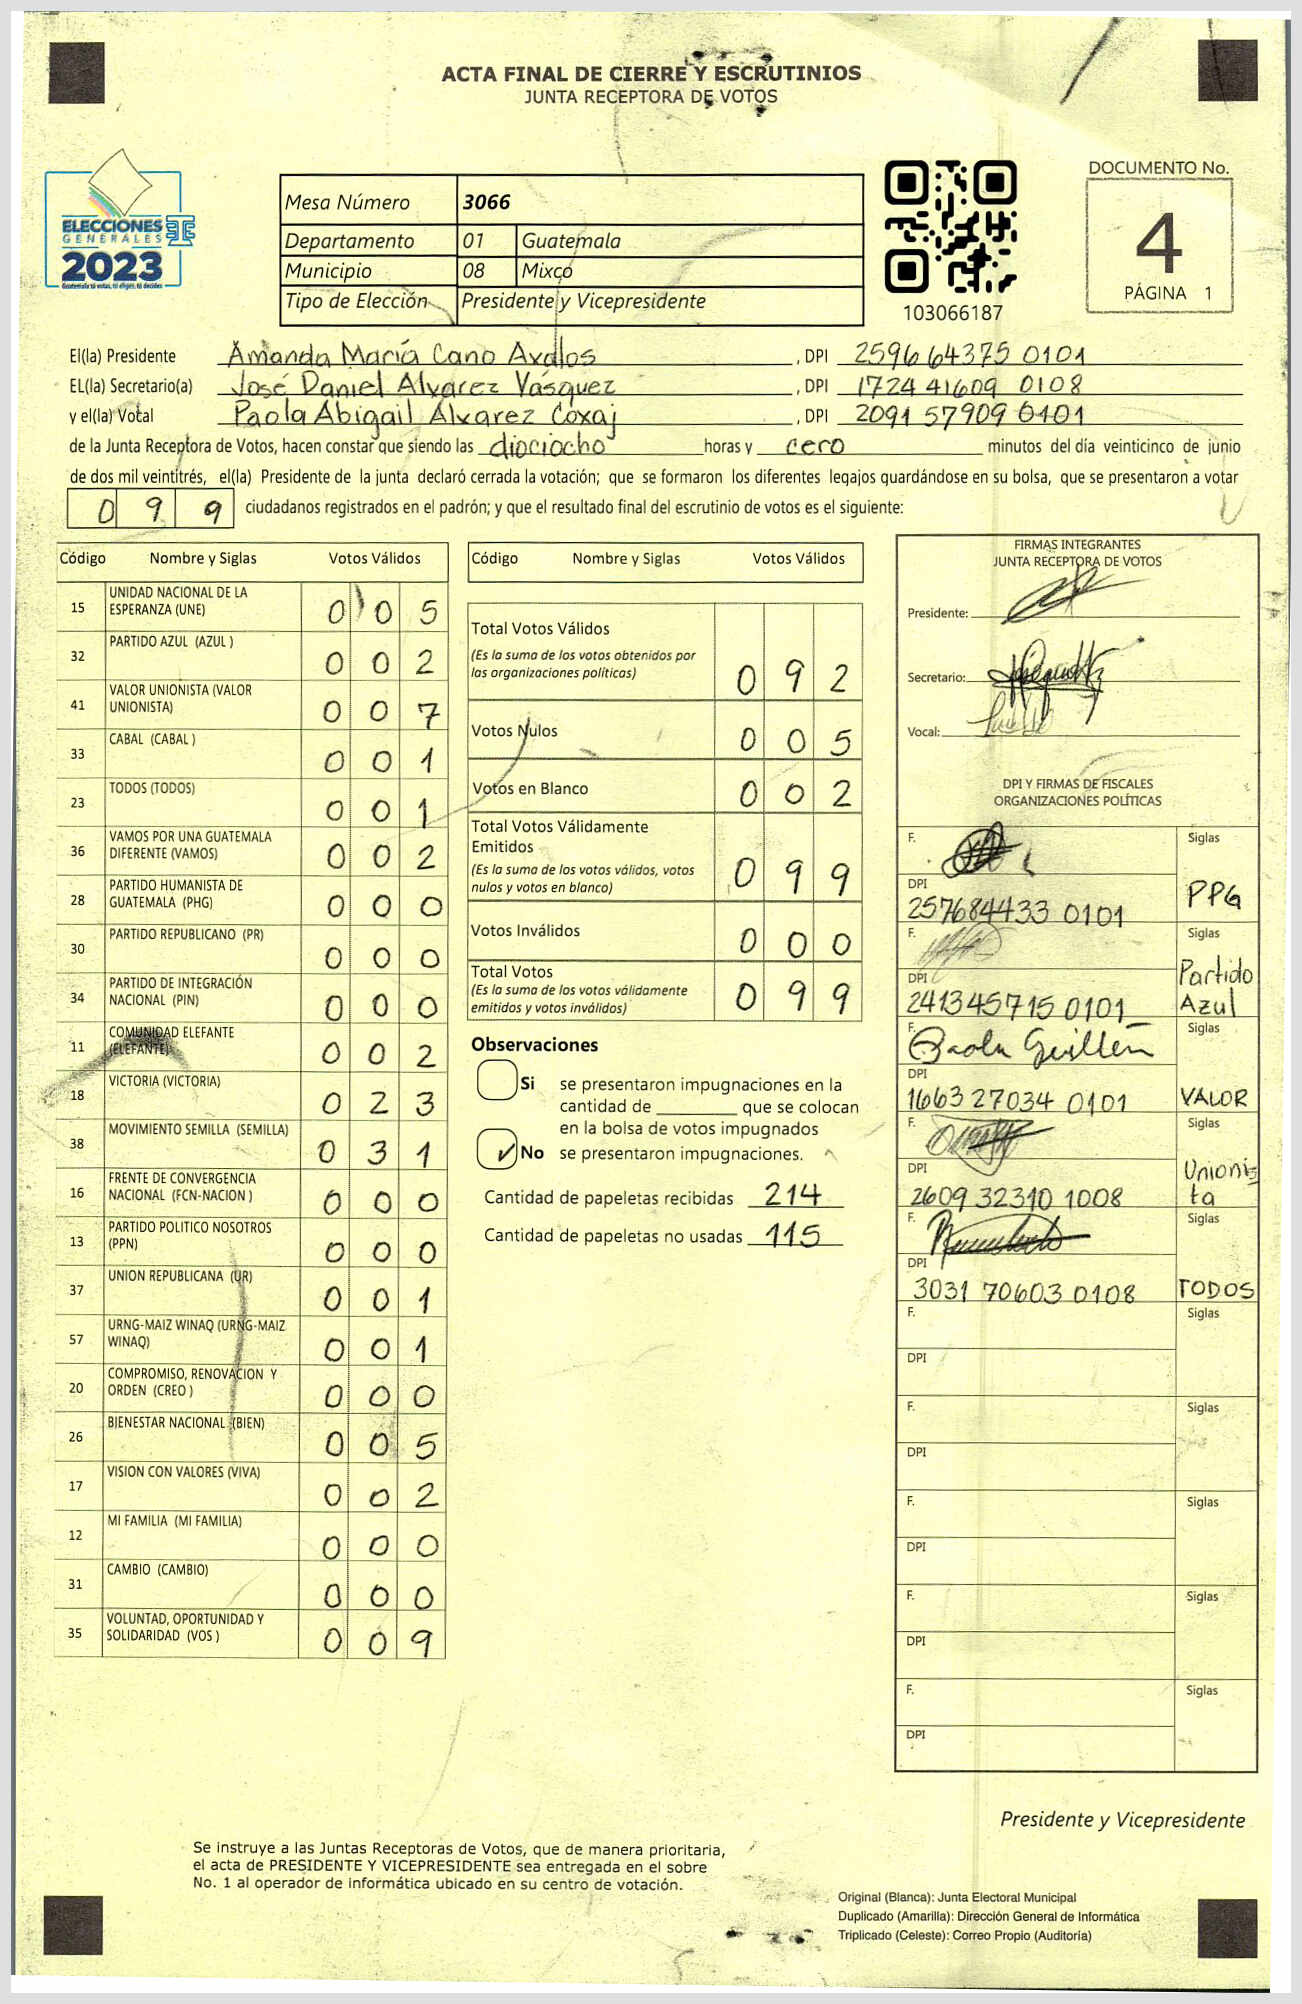 ACTA FINAL DE CIERRE Y ESCRUTINIOS
JUNTA RECEPTORA DE VOTOS
ELECCIONES
GENERALES
2023
Guatemala tú votas, tú eliges, tú decides
Mesa Número 3066
Departamento 01 Guatemala
Municipio 08 Mixco
Tipo de Elección Presidente y Vicepresidente
103066187
DOCUMENTO No.
4
PÁGINA 1
El(la) Presidente Amanda María Cano Avalos, DPI 2596 64375 0101
EL(la) Secretario(a) José Daniel Alvarez Vásquez, DPI 1724 41609 0108
y el(la) Votal Paola Abigail Álvarez Coxaj, DPI 2091 57909 0101
de la Junta Receptora de Votos, hacen constar que siendo las diociocho horas y cero minutos del día veinticinco de junio
de dos mil veintitrés, el(la) Presidente de la junta declaró cerrada la votación; que se formaron los diferentes legajos guardándose en su bolsa, que se presentaron a votar
0 9 9 ciudadanos registrados en el padrón; y que el resultado final del escrutinio de votos es el siguiente:
Código Nombre y Siglas Votos Válidos
15 UNIDAD NACIONAL DE LA ESPERANZA (UNE) 0 0 5
32 PARTIDO AZUL (AZUL ) 0 0 2
41 VALOR UNIONISTA (VALOR UNIONISTA) 0 0 7
33 CABAL (CABAL ) 0 0 1
23 TODOS (TODOS) 0 0 1
36 VAMOS POR UNA GUATEMALA DIFERENTE (VAMOS) 0 0 2
28 PARTIDO HUMANISTA DE GUATEMALA (PHG) 0 0 0
30 PARTIDO REPUBLICANO (PR) 0 0 0
34 PARTIDO DE INTEGRACIÓN NACIONAL (PIN) 0 0 0
11 COMUNIDAD ELEFANTE (ELEFANTE) 0 0 2
18 VICTORIA (VICTORIA) 0 2 3
38 MOVIMIENTO SEMILLA (SEMILLA) 0 3 1
16 FRENTE DE CONVERGENCIA NACIONAL (FCN-NACION ) 0 0 0
13 PARTIDO POLITICO NOSOTROS (PPN) 0 0 0
37 UNION REPUBLICANA (UR) 0 0 1
57 URNG-MAIZ WINAQ (URNG-MAIZ WINAQ) 0 0 1
20 COMPROMISO, RENOVACION Y ORDEN (CREO ) 0 0 0
26 BIENESTAR NACIONAL (BIEN) 0 0 5
17 VISION CON VALORES (VIVA) 0 0 2
12 MI FAMILIA (MI FAMILIA) 0 0 0
31 CAMBIO (CAMBIO) 0 0 0
35 VOLUNTAD, OPORTUNIDAD Y SOLIDARIDAD (VOS ) 0 0 9
Código Nombre y Siglas Votos Válidos
Total Votos Válidos
(Es la suma de los votos obtenidos por
las organizaciones políticas) 0 9 2
Votos Nulos 0 0 5
Votos en Blanco 0 0 2
Total Votos Válidamente
Emitidos
(Es la suma de los votos válidos, votos
nulos y votos en blanco) 0 9 9
Votos Inválidos 0 0 0
Total Votos
(Es la suma de los votos válidamente
emitidos y votos inválidos) 0 9 9
Observaciones
Si se presentaron impugnaciones en la
cantidad de ________ que se colocan
en la bolsa de votos impugnados
✓ No se presentaron impugnaciones.
Cantidad de papeletas recibidas 214
Cantidad de papeletas no usadas 115
FIRMAS INTEGRANTES
JUNTA RECEPTORA DE VOTOS
Presidente:
Secretario:
Vocal:
DPI Y FIRMAS DE FISCALES
ORGANIZACIONES POLÍTICAS
F. Siglas
DPI PPG
257684433 0101
F. Siglas
DPI Partido
241345715 0101 Azul
F. Paola Guillén Siglas
DPI
1663 27034 0101 VALOR
F. Siglas
DPI Unionis
2609 32310 1008 ta
F. Siglas
DPI
3031 70603 0108 TODOS
F. Siglas
DPI
F. Siglas
DPI
F. Siglas
DPI
F. Siglas
DPI
F. Siglas
DPI
Presidente y Vicepresidente
Se instruye a las Juntas Receptoras de Votos, que de manera prioritaria,
el acta de PRESIDENTE Y VICEPRESIDENTE sea entregada en el sobre
No. 1 al operador de informática ubicado en su centro de votación.
Original (Blanca): Junta Electoral Municipal
Duplicado (Amarilla): Dirección General de Informática
Triplicado (Celeste): Correo Propio (Auditoría)